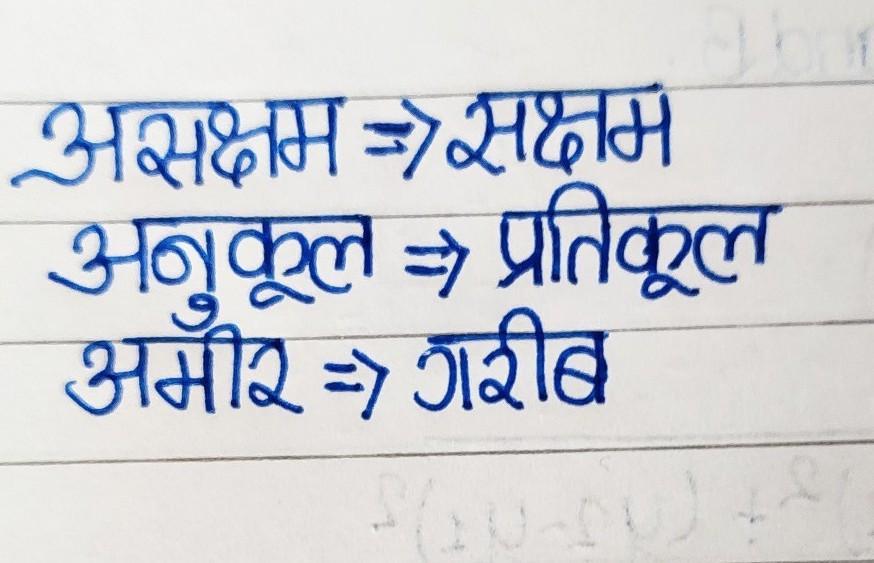 असक्षम => सक्षम
अनुकूल => प्रतिकूल
अमीर => गरीब